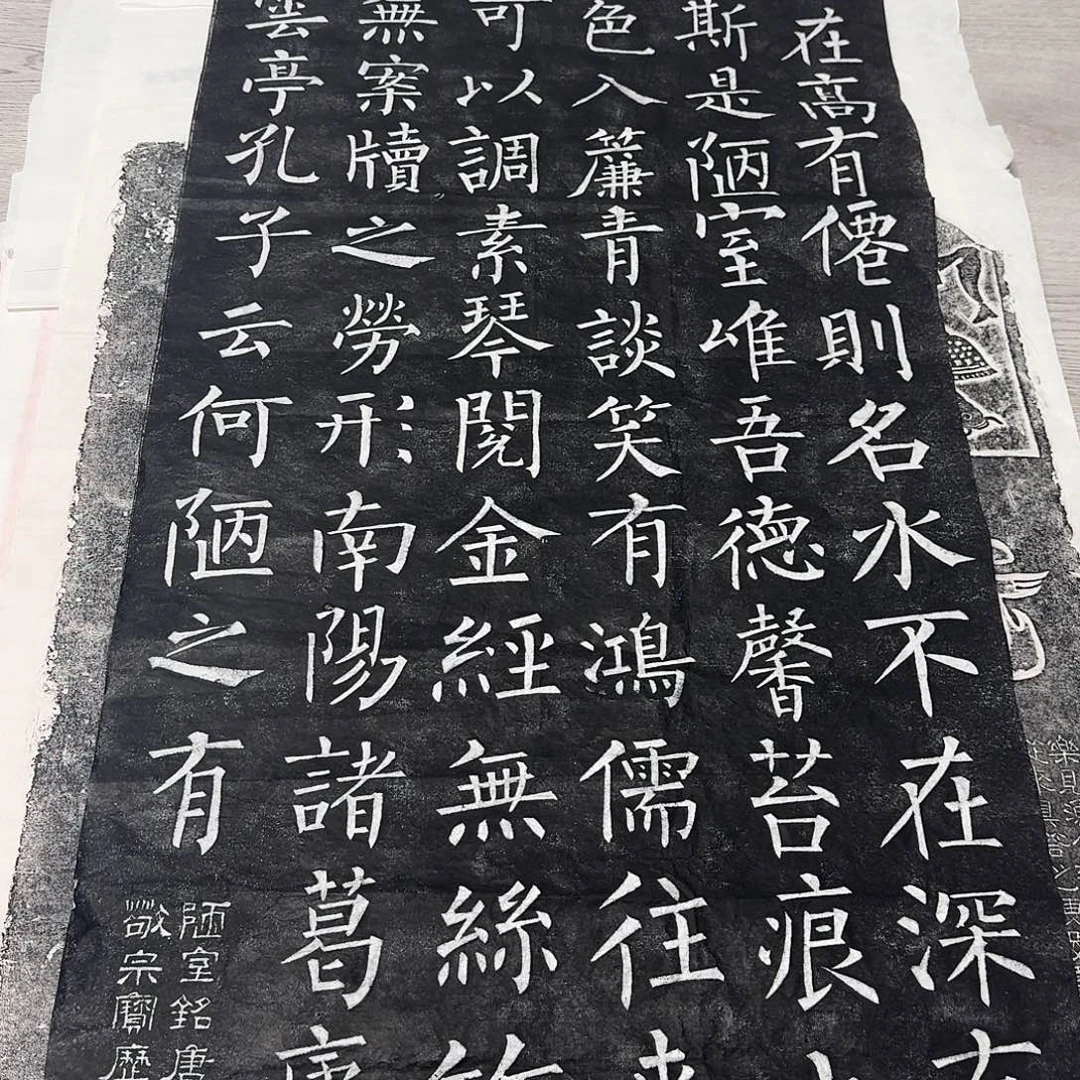 在高有僊則名水不在深有
斯是陋室唯吾德馨苔痕
色入簾青談笑有鴻儒往来
可以調素琴閱金經無絲竹
無案牘之勞形南陽諸葛廬
雲亭孔子云何陋之有
陋室銘唐
敬宗寶歷